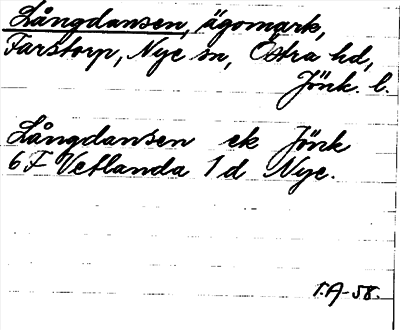 Långdansen, ägomark,
Farstorp, Nye sn, Östra hd,
Jönk. l.
Långdansen ek Jönk
6F Vetlanda 1d Nye.
T.A-58.